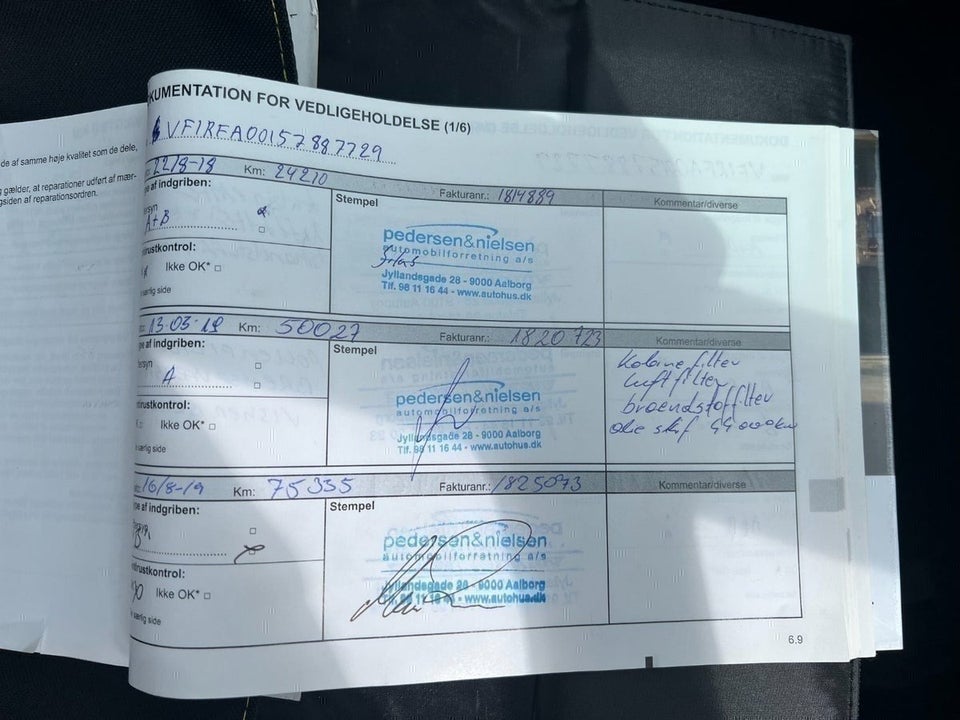 de af samme høje kvalitet som de dele,
gælder, at reparationer udført af mær-
gsiden af reparationsordren.
KUMENTATION FOR VEDLIGEHOLDELSE (1/6)
VF1RFA00157887729
22/8-18 Km: 24210 Fakturanr.: 1814889 Kommentar/diverse
e af indgriben:
A+B
trustkontrol:
Ikke OK*
særlig side
Stempel
pedersen&nielsen
automobilforretning a/s
Jyllandsgade 28 - 9000 Aalborg
Tlf. 98 11 16 44 - www.autohus.dk
13-03-19 Km: 50027 Fakturanr.: 1820723 Kommentar/diverse
e af indgriben:
A
trustkontrol:
Ikke OK*
særlig side
Stempel
pedersen&nielsen
automobilforretning a/s
Jyllandsgade 28 - 9000 Aalborg
Tlf. 98 11 16 44 - www.autohus.dk
Kabinefilter
luftfilter
broendstoffilter
olie skif 44000km
16/8-19 Km: 75335 Fakturanr.: 1825093 Kommentar/diverse
e af indgriben:
trustkontrol:
Ikke OK*
særlig side
Stempel
pedersen&nielsen
automobilforretning a/s
Jyllandsgade 28 - 9000 Aalborg
Tlf. 98 11 16 44 - www.autohus.dk
6.9